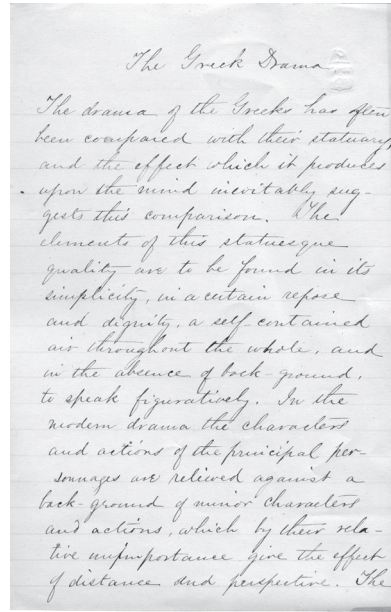 The Greek Drama
The drama of the Greeks has often
been compared with their statuary,
and the effect which it produces
upon the mind inevitably sug-
gests this comparison. The
elements of this statuesque
quality are to be found in its
simplicity, in a certain repose
and dignity, a self-contained
air throughout the whole, and
in the absence of back-ground,
to speak figuratively. In the
modern drama the characters
and actions of the principal per-
sonnages are relieved against a
back-ground of minor characters
and actions, which by their rela-
tive unimportance give the effect
of distance and perspective. The